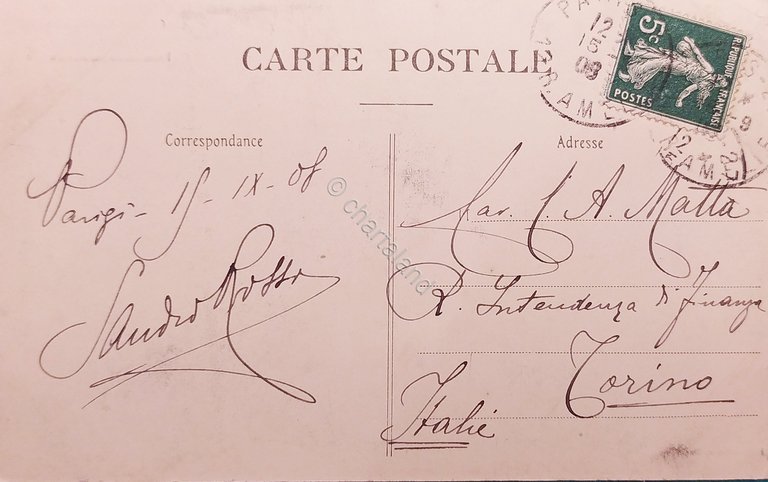 CARTE POSTALE
Correspondance
Parigi - 15 - IX - 08
Sandro Rosso
Adresse
Cav. C. A. Matta
R. Intendenza di Finanza
Torino
Italie
5c
REPUBLIQUE FRANÇAISE
POSTES
PARIS
12
15
08
R. AME
12 *
E AM
© chartaland